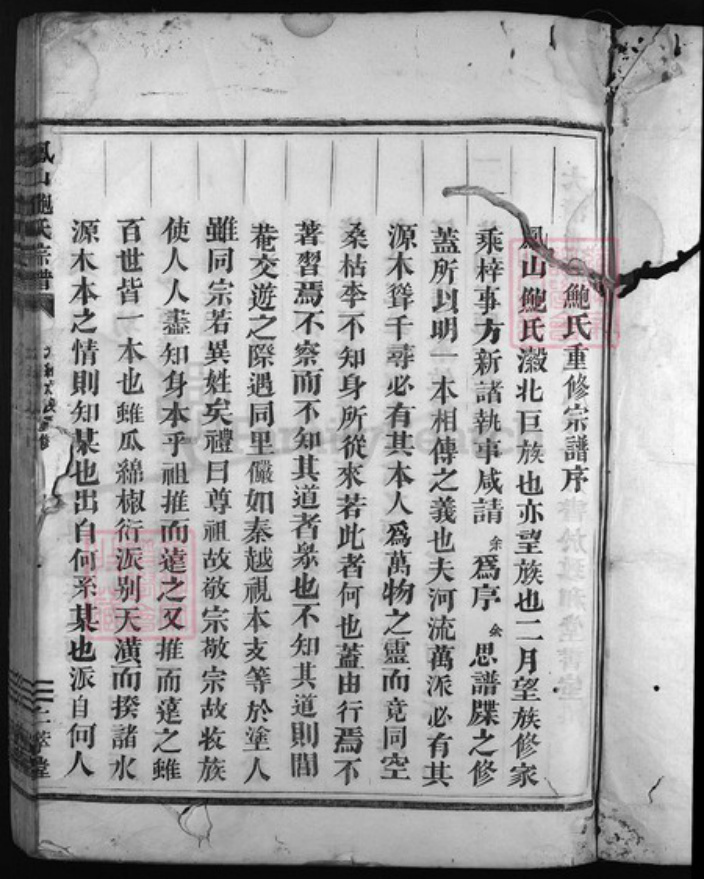 鮑氏重修宗譜序
鳳山鮑氏漵北巨族也亦望族也二月望族修家
乘梓事方新諸執事咸請余爲序余思譜牒之修
蓋所以明一本相傳之義也夫河流萬派必有其
源木聳千尋必有其本人爲萬物之靈而竟同空
桑枯李不知身所從來若此者何也蓋由行焉不
著習焉不察而不知其道者衆也不知其道則閭
菴交遊之際遇同里儼如秦越視本支等於塗人
雖同宗若異姓矣禮曰尊祖故敬宗敬宗故收族
使人人盡知身本乎祖推而遠之又推而遠之雖
百世皆一本也雖瓜綿椒衍派别天潢而揆諸水
源木本之情則知某也出自何系某也派自何人
鳳山鮑氏宗譜
仁萃堂